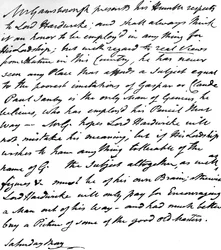 Mr Gainsborough presents his Humble respects
to Lord Hardwicke; and shall always think it
an honor to be employ'd in any thing for
his Lordship; but with regard to real Views
from Nature in this Country, he has never
seen any Place that affords a Subject equal
to the poorest imitations of Gaspar or Claude.
Paul Sanby is the only Man of Genius, he
believes, who has employ'd his Pencil that
Way - Mr G. hopes Lord Hardwicke will
not mistake his meaning, but if his Lordship
wishes to have any thing tollerable of the
name of G. the Subject altogether, as well as
figures &c must be of his own Brain; otherwise
Lord Hardwicke will only pay for Encouraging
a Man out of his Way - and had much better
buy a Picture of some of the good Old Masters.
Saturday Morn